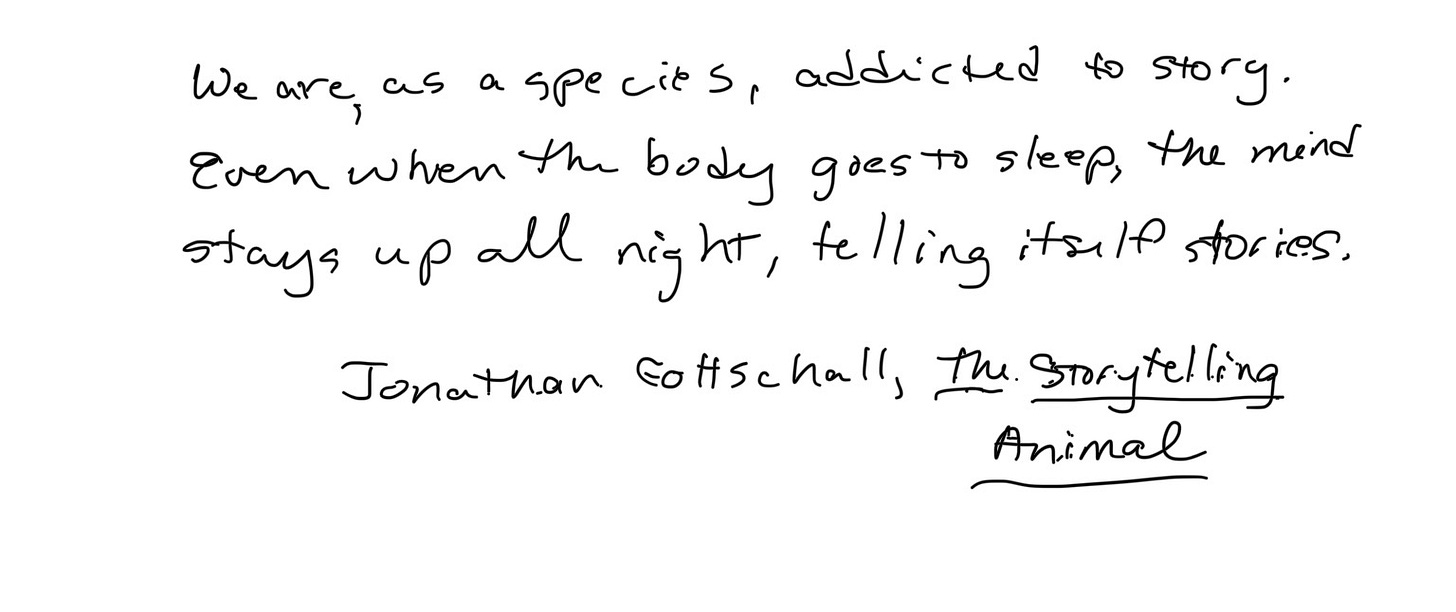 We are, as a species, addicted to story.
Even when the body goes to sleep, the mind
stays up all night, telling itself stories.
Jonathan Gottschall, The Storytelling
Animal